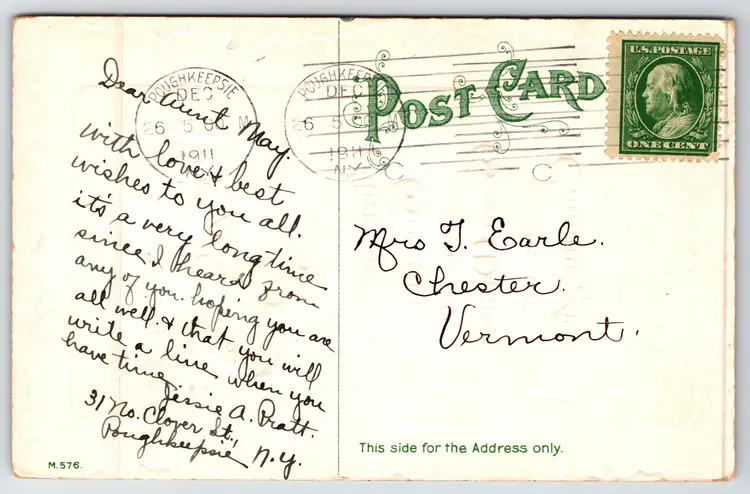 Dear Aunt May.
with love & best
wishes to you all.
it's a very long time
since I heard from
any of you. hoping you are
all well. & that you will
write a line when you
have time.
Jessie A. Pratt.
31 No. Clover St.,
Poughkeepsie N.Y.
M.576.
POUGHKEEPSIE
DEC
26
1911
N.Y.
POUGHKEEPSIE
DEC
26
1911
N.Y.
POST CARD
U.S. POSTAGE
ONE CENT
Mrs T. Earle.
Chester.
Vermont.
This side for the Address only.